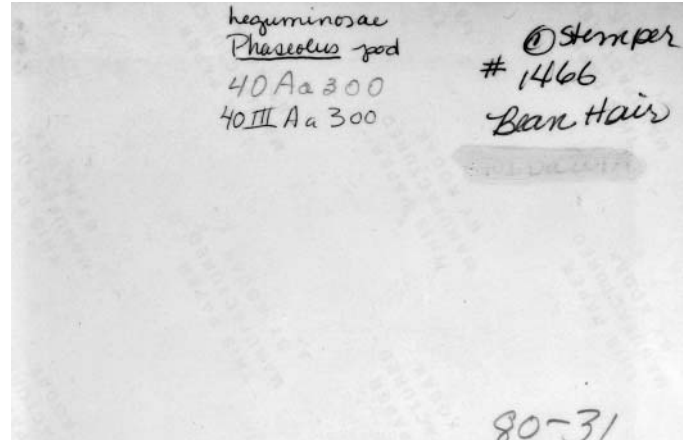 Leguminosae
Phaseolus pod
40 Aa 300
40 III Aa 300
① Stemper
# 1466
Bean Hair
80-31